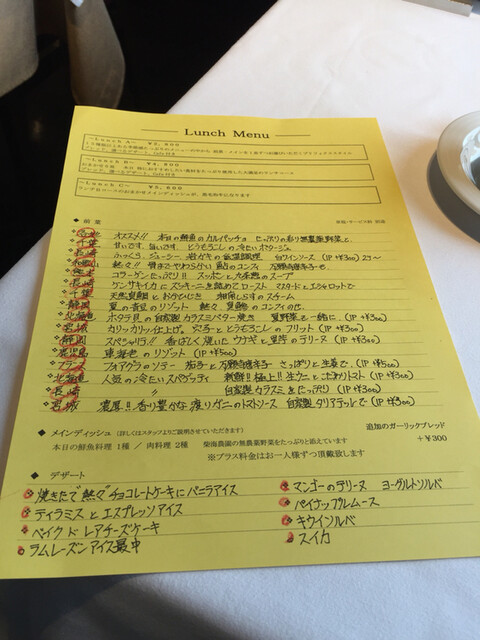 Lunch Menu
~Lunch A~ ¥2,800
~Lunch B~ ¥4,800
~Lunch C~ ¥5,600
◆ 前菜
オススメ!! 本日の鮮魚のカルパッチョ たっぷりの彩り無農薬野菜と
千葉 甘いです。旨いです とうもろこしの冷たいポタージュ
ふっくら ジューシー 岩ガキの低温調理 白ワインソース (1P +¥300) 2P~
熱々!! 骨までやわらかい 鮎のコンフィ 万願寺唐辛子と
コラーゲンたっぷり!! スッポンと冬瓜のスープ
長崎 ケンサキイカに ズッキーニを詰めてロースト マスタードとエシャロットで
千葉 天然真鯛と おかひじき 相性しらすのスチーム
静岡 夏の青豆のリゾット 熱々
北海道 ホタテ貝の自家製カラスミバター焼き 夏野菜と一緒に (1P +¥300)
宮城 カリッカリッに仕上げ 穴子ととうもろこしのフリット (1P +¥300)
静岡 スペシャリテ!! 香ばしく焼いた ウナギと里芋のテリーヌ (1P +¥300)
鹿児島 車海老のリゾット (1P +¥300)
フランス フォアグラのソテー 茄子と万願寺唐辛子 さっぱりと生姜で (1P +¥300)
北海道 人気の冷たいスパゲッティ 新鮮!! 極上!! 生ウニとこだわりトマト (1P +¥300)
長崎 〃 自家製カラスミをたっぷり (1P +¥300)
宮城 濃厚!! 香り豊かな 渡りガニのトマトソース 自家製タリアテッレで (1P +¥300)
◆ メインディッシュ (詳しくはスタッフよりご説明させていただきます) 追加のガーリックブレッド
本日の鮮魚料理 1種 / 肉料理 2種 柴海農園の無農薬野菜をたっぷりと添えています +¥300
※プラス料金はお一人様ずつ頂戴致します
◆ デザート
焼きたて"熱々"チョコレートケーキにバニラアイス
ティラミスとエスプレッソアイス
ベイクドレアチーズケーキ
ラムレーズンアイス最中
マンゴーのテリーヌ ヨーグルトソルベ
パイナップルムース
キウイソルベ
スイカ